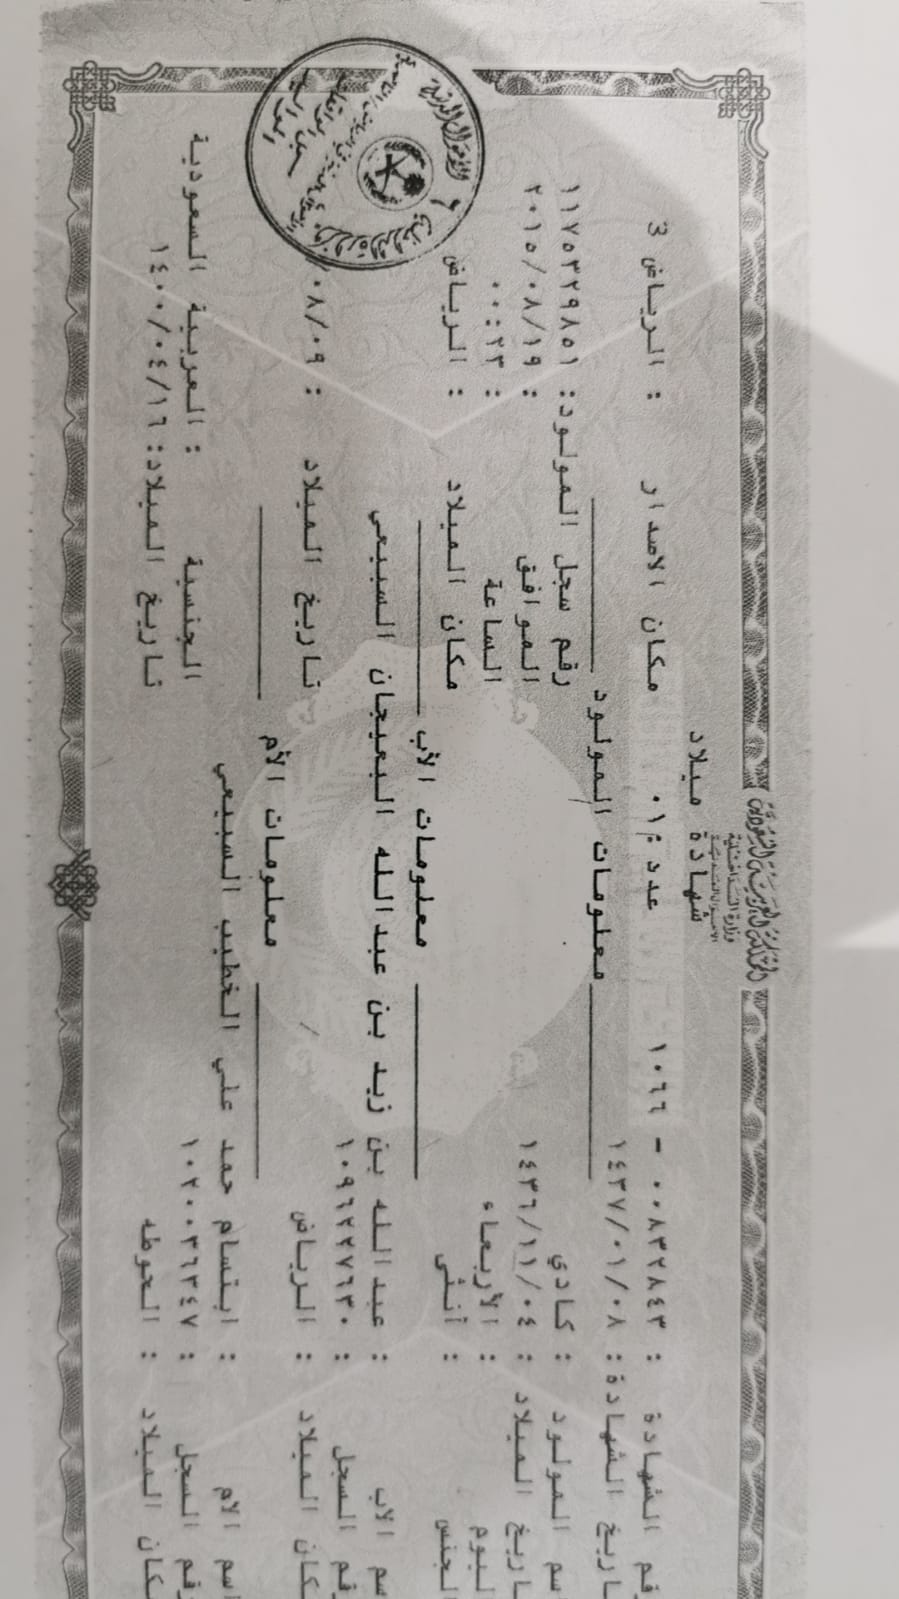 المملكة العربية السعودية
وزارة الداخلية
الاحوال المدنية
شهادة ميلاد
رقم الشهادة : ٠٠٨٣٢٨٤٣ - ١٠٦٦ عدد : ٠١ مكان الاصدار : الرياض 3
تاريخ الشهادة : ١٤٣٧/٠١/٠٨
معلومات المولود
اسم المولود : كادي رقم سجل المولود: ١١٧٥٣٢٩٨٥١
تاريخ الميلاد : ١٤٣٦/١١/٠٤ الموافق : ٢٠١٥/٠٨/١٩
اليوم : الأربعاء الساعة : ٠٠:٢٣
الجنس : أنثى مكان الميلاد : الرياض
معلومات الأب
اسم الاب : عبدالله بن زيد بن عبدالله البعيجان السبيعي
رقم السجل : ١٠٩٦٢٢٧٦٣٠
مكان الميلاد : الرياض تاريخ الميلاد : ٠٨/٠٩/
معلومات الأم
اسم الام : ابتسام حمد علي الخطيب السبيعي
رقم السجل : ١٠٢٠٠٣٦٣٤٧ الجنسية : العربية السعودية
مكان الميلاد : الحوطه تاريخ الميلاد: ١٤٠٠/٠٤/١٦